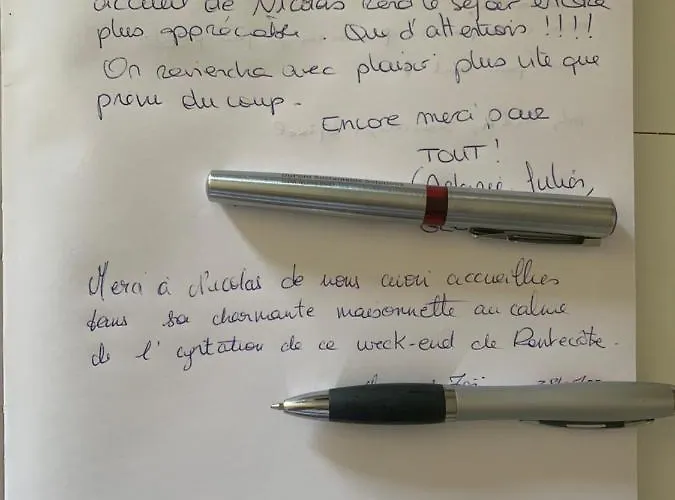 accueil de Nicolas rend le séjour encore
plus appréciable. Que d'attentions !!!!
On reviendra avec plaisir, plus vite que
prévu du coup.
Encore merci pour
TOUT !
Julien,
Merci à Nicolas de nous avoir accueillies
dans sa charmante maisonnette au calme
de l'agitation de ce week-end de Pentecôte.